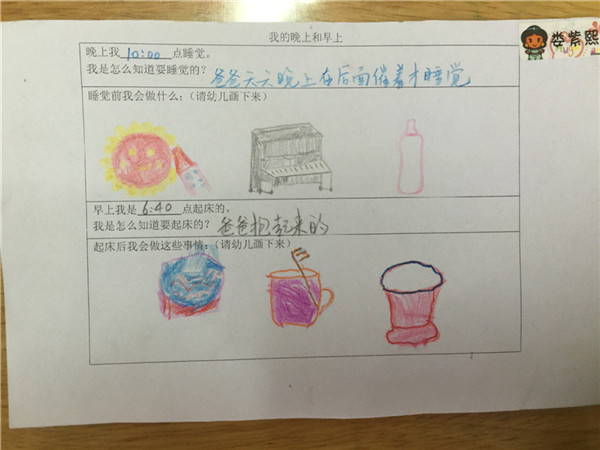 我的晚上和早上
娄紫熙
晚上我10:00点睡觉。
我是怎么知道要睡觉的？爸爸天天晚上在后面催着才睡觉
睡觉前我会做什么：（请幼儿画下来）
早上我是6:40点起床的。
我是怎么知道要起床的？爸爸抱起来的
起床后我会做这些事情：（请幼儿画下来）